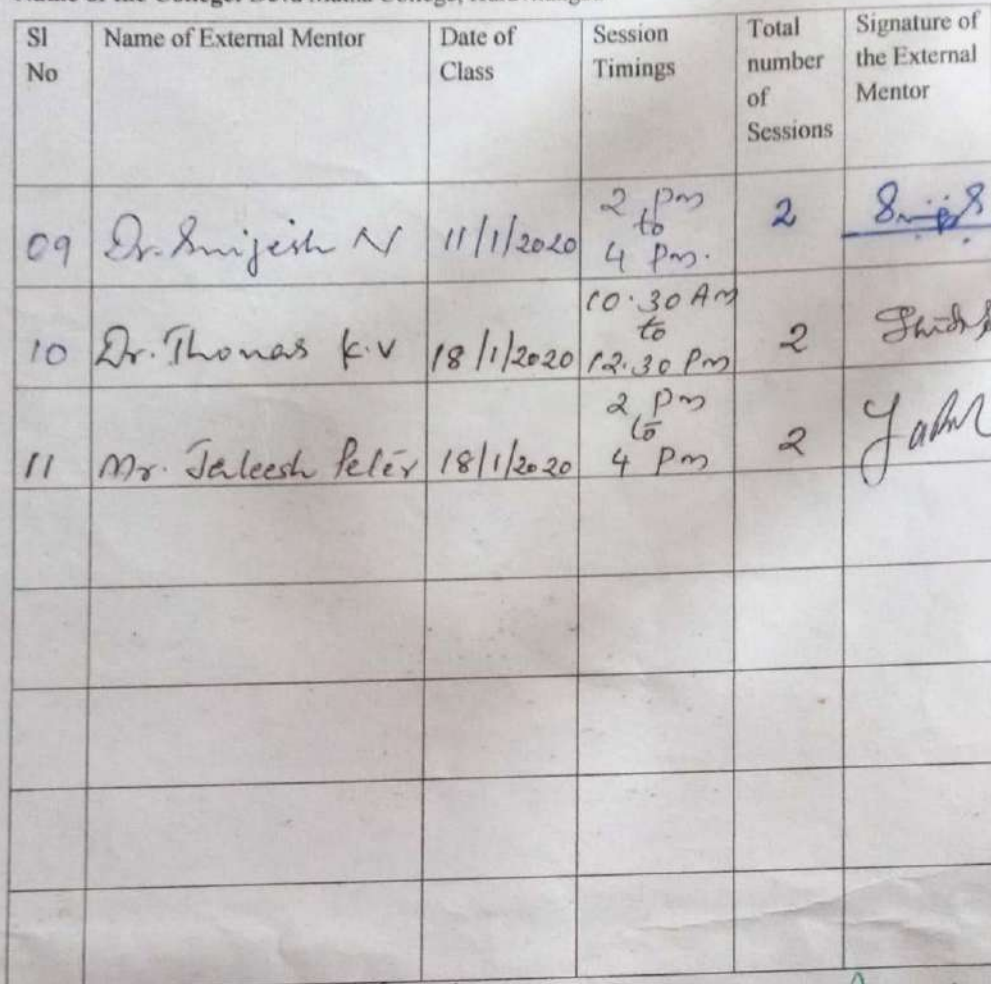 Sl No
Name of External Mentor
Date of Class
Session Timings
Total number of Sessions
Signature of the External Mentor
09 Dr. Smijesh N 11/1/2020 2 pm to 4 Pm. 2
10 Dr. Thomas K.V 18/1/2020 10.30 Am to 12.30 Pm 2
11 Mr. Jaleesh Peter 18/1/2020 2 Pm to 4 Pm 2